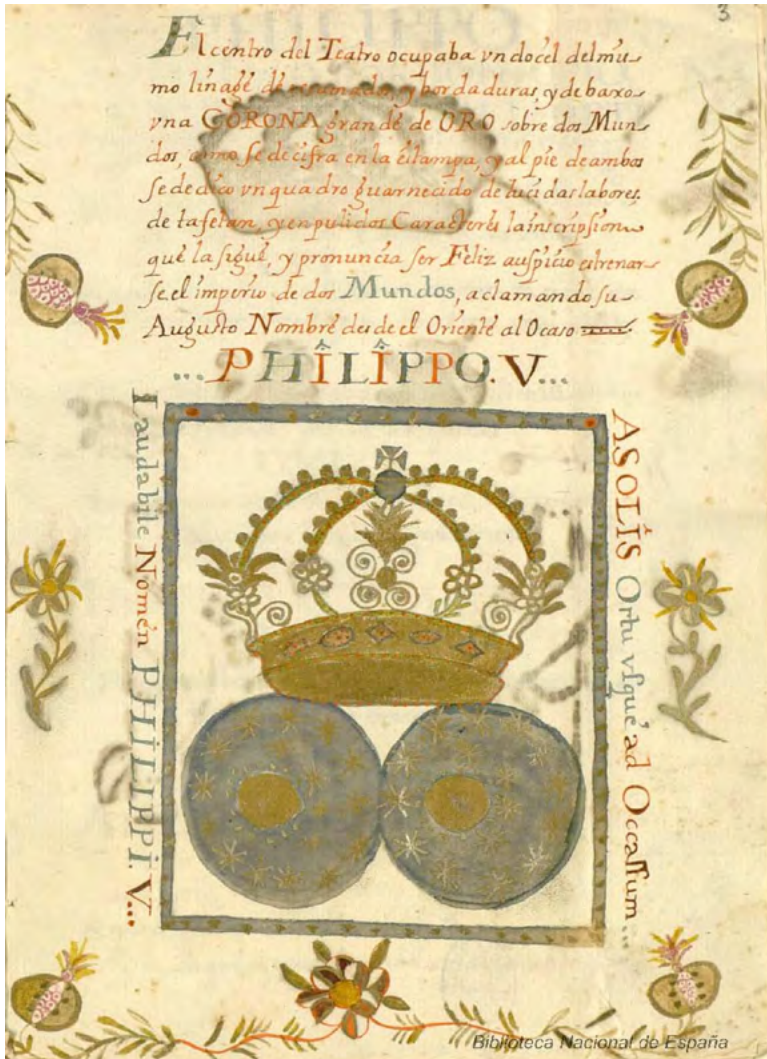 3
El centro del Teatro ocupaba vn docel del mis-
mo linage de recamados, y bordaduras, y debaxo
vna CORONA grande de ORO sobre dos Mun-
dos, como se decifra en la estampa, y al pie de ambos
se dedico vn quadro guarnecido de lucidas labores
de tafetan, y en pulidos Caracteres la inscripsion
que la sigue, y pronuncia ser Feliz auspicio estrenar-
se el imperio de dos Mundos, aclamando su
Augusto Nombre desde el Oriente al Ocaso
...PHILIPPO. V...
Laudabile Nomen PHILIPPI. V...
A SOLIS Ortu vsque ad Occassum...
Biblioteca Nacional de España